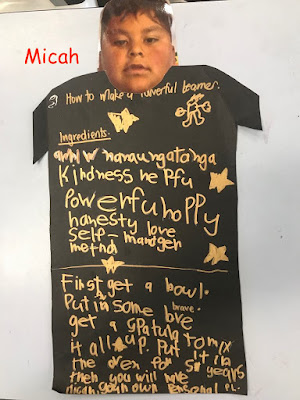 Micah
How to make a Powerful learner.
Ingredients:
whanaungatanga
Kindness he Pfu
Powerfuhappy
hanesty love
self-
First get a bowl.
Put in some brave.
get a spatula to mix love
it all up. Put it in
the oven for six years
then you will have
micah your own Personal PL.